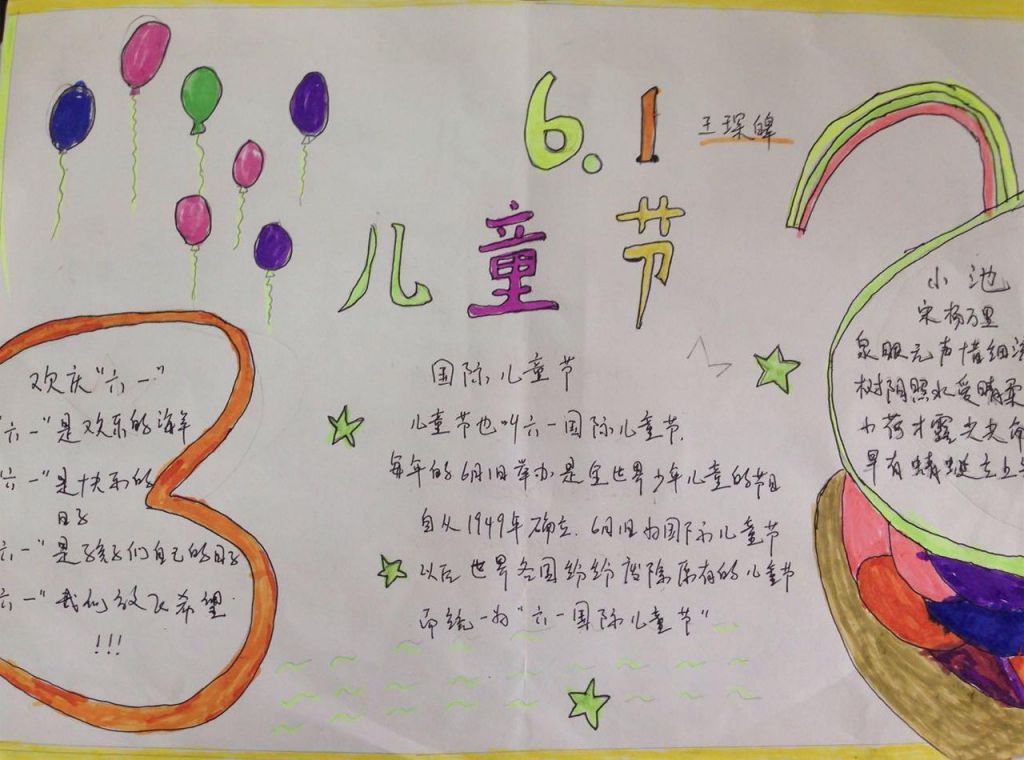 6.1
儿童节
欢庆"六一"
"六一"是欢乐的海洋
"六一"是快乐的
日子
六一"是孩子们自己的日子
六一"我们放飞希望
!!!
国际儿童节
儿童节也叫六一国际儿童节.
每年的6月1日举办是全世界少年儿童的节日
自从1949年确立.6月1日为国际儿童节
以后世界各国纷纷废除原有的儿童节
而统一为"六一国际儿童节"
小池
宋杨万里
泉眼无声惜细流
树阴照水爱晴柔
小荷才露尖尖角
早有蜻蜓立上